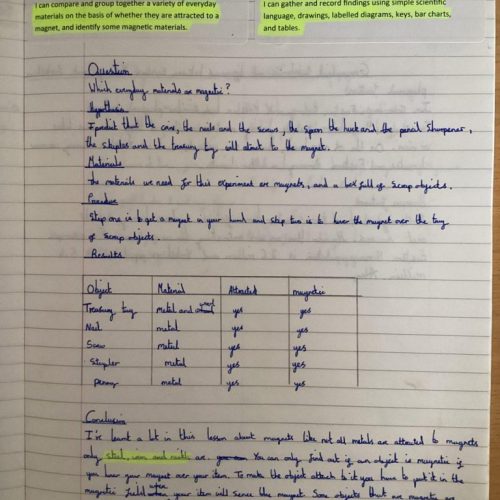 I can compare and group together a variety of everyday
materials on the basis of whether they are attracted to a
magnet, and identify some magnetic materials.
I can gather and record findings using simple scientific
language, drawings, labelled diagrams, keys, bar charts,
and tables.
Question
Which everyday materials are magnetic?
Hypothesis
I predict that the coins, the nails and the screws, the spoon the hook and the pencil sharpener,
the staples and the treasury tag will attract to the magnet.
Materials
The materials we need for this experiment are magnets, and a box full of scrap objects.
Procedure
Step one is to get a magnet in your hand and step two is to hover the magnet over the tray
of scrap objects.
Results
Object Material Attracted magnetic
Treasury tag metal and yes yes
Nail metal yes yes
Screw metal yes yes
Stapler metal yes yes
penny metal yes yes
Conclusion
I've learnt a lot in this lesson about magnets like not all metals are attracted to magnets
only steel, iron and are. You can only find out if an object is magnetic if
you hover your magnet over your item. To make the object attach to it you have to put it in the
magnetic field your item will sence the magnet. Some objects